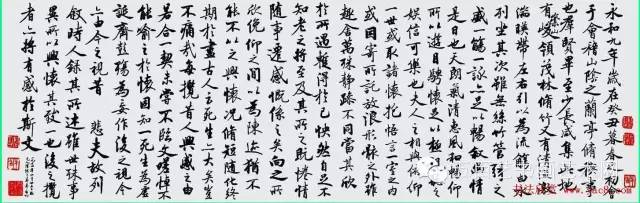 永和九年歲在癸丑暮春之初會
于會稽山陰之蘭亭脩禊事
也群賢畢至少長咸集此地
有崇山峻領茂林脩竹又有清流激
湍暎帶左右引以為流觴曲水
列坐其次雖無絲竹管弦之
盛一觴一詠亦足以暢叙幽情
是日也天朗氣清惠風和暢仰
所以遊目騁懷足以極視聽之
娛信可樂也夫人之相與俯仰
一世或取諸懷抱悟言一室之內
或因寄所託放浪形骸之外雖
趣舍萬殊靜躁不同當其欣
於所遇暫得於己怏然自足不
知老之將至及其所之既惓情
隨事遷感慨係之矣向之所
欣俛仰之間以為陳迹猶不
能不以之興懷況脩短隨化終
期於盡古人云死生亦大矣豈
不痛哉每攬昔人興感之由
若合一契未嘗不臨文嗟悼不
能喻之於懷固知一死生為虛
誕齊彭殤為妄作後之視今
亦由今之視昔 悲夫故列
叙時人錄其所述雖世殊事
異所以興懷其致一也後之攬
者亦將有感於斯文